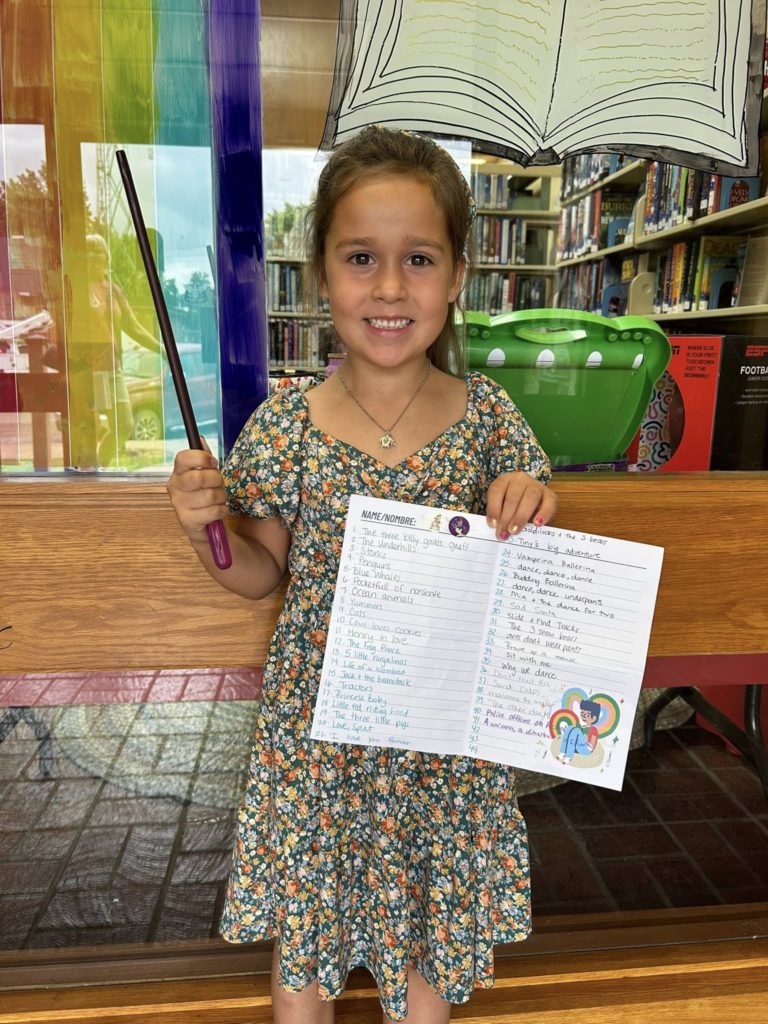 NAME/NOMBRE:
1. The three billy goats gruff
2. The Underhills
3. Storks
4. Penguins
5. Blue Whales
6. Pocketfull of nonsense
7. Ocean animals
8. Possums
9. Cats
10. Cow loves cookies
11. Henry in love
12. The frog Prince
13. 5 little Penguinos
14. Life of a wombat
15. Jack + the beanstalk
16. Tractors
17. Princess Baby
18. Little red riding hood
19. The three little pigs
20. Love, Splat
21. I love you forever
Goldilocks + the 3 bears
Tiny's big adventure
24. Vamprina Ballerina
25. dance, dance, dance
26. Budding Ballerina
27. dance, dance underpants
28. Mia + the dance for two
29. Sad Santa
30. Slide + Find Trucks
31. The 3 snow bears
32. ants dont wear pants
33. Brave as a mouse
34. Sit with me
35. Why we dance
36.
37. Sand Cake
38.
39. The other ducks
40. Police officers on
41. A unicorn, a dinosaur
42.
43.
44.
BURKE
DEAD
ESP
WHERE ELSE
IS YOUR FIRST
TOUCHDOWN
JUST
THE BEGINNING!
ESP
FOOTBA
JUNIOR SIZE